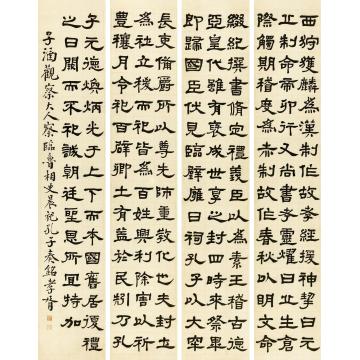 西狩獲麟為漢制作故孝經援神挈曰元
丘制命帝卯行又尚書考靈燿曰丘生倉
際觸期稽度為赤制故作春秋以明文命
綴紀撰書脩定禮義臣以為素王稽古德
亞皇代雖有褒成世享之封四時來祭畢
即歸國臣伏見臨辟廱日祠孔子以大牢
長吏備爵所以尊先師重教化也夫封土
為社立稷而祀皆為百姓興利除害以祈
豐穰月令祀百辟卿士有益於民矧乃孔
子元德煥炳光于上下而本國舊居復禮
之日闕而不祀誠朝廷聖恩所宜特加
子涵觀察大人察臨魯相史晨祀孔子奏銘孝胥